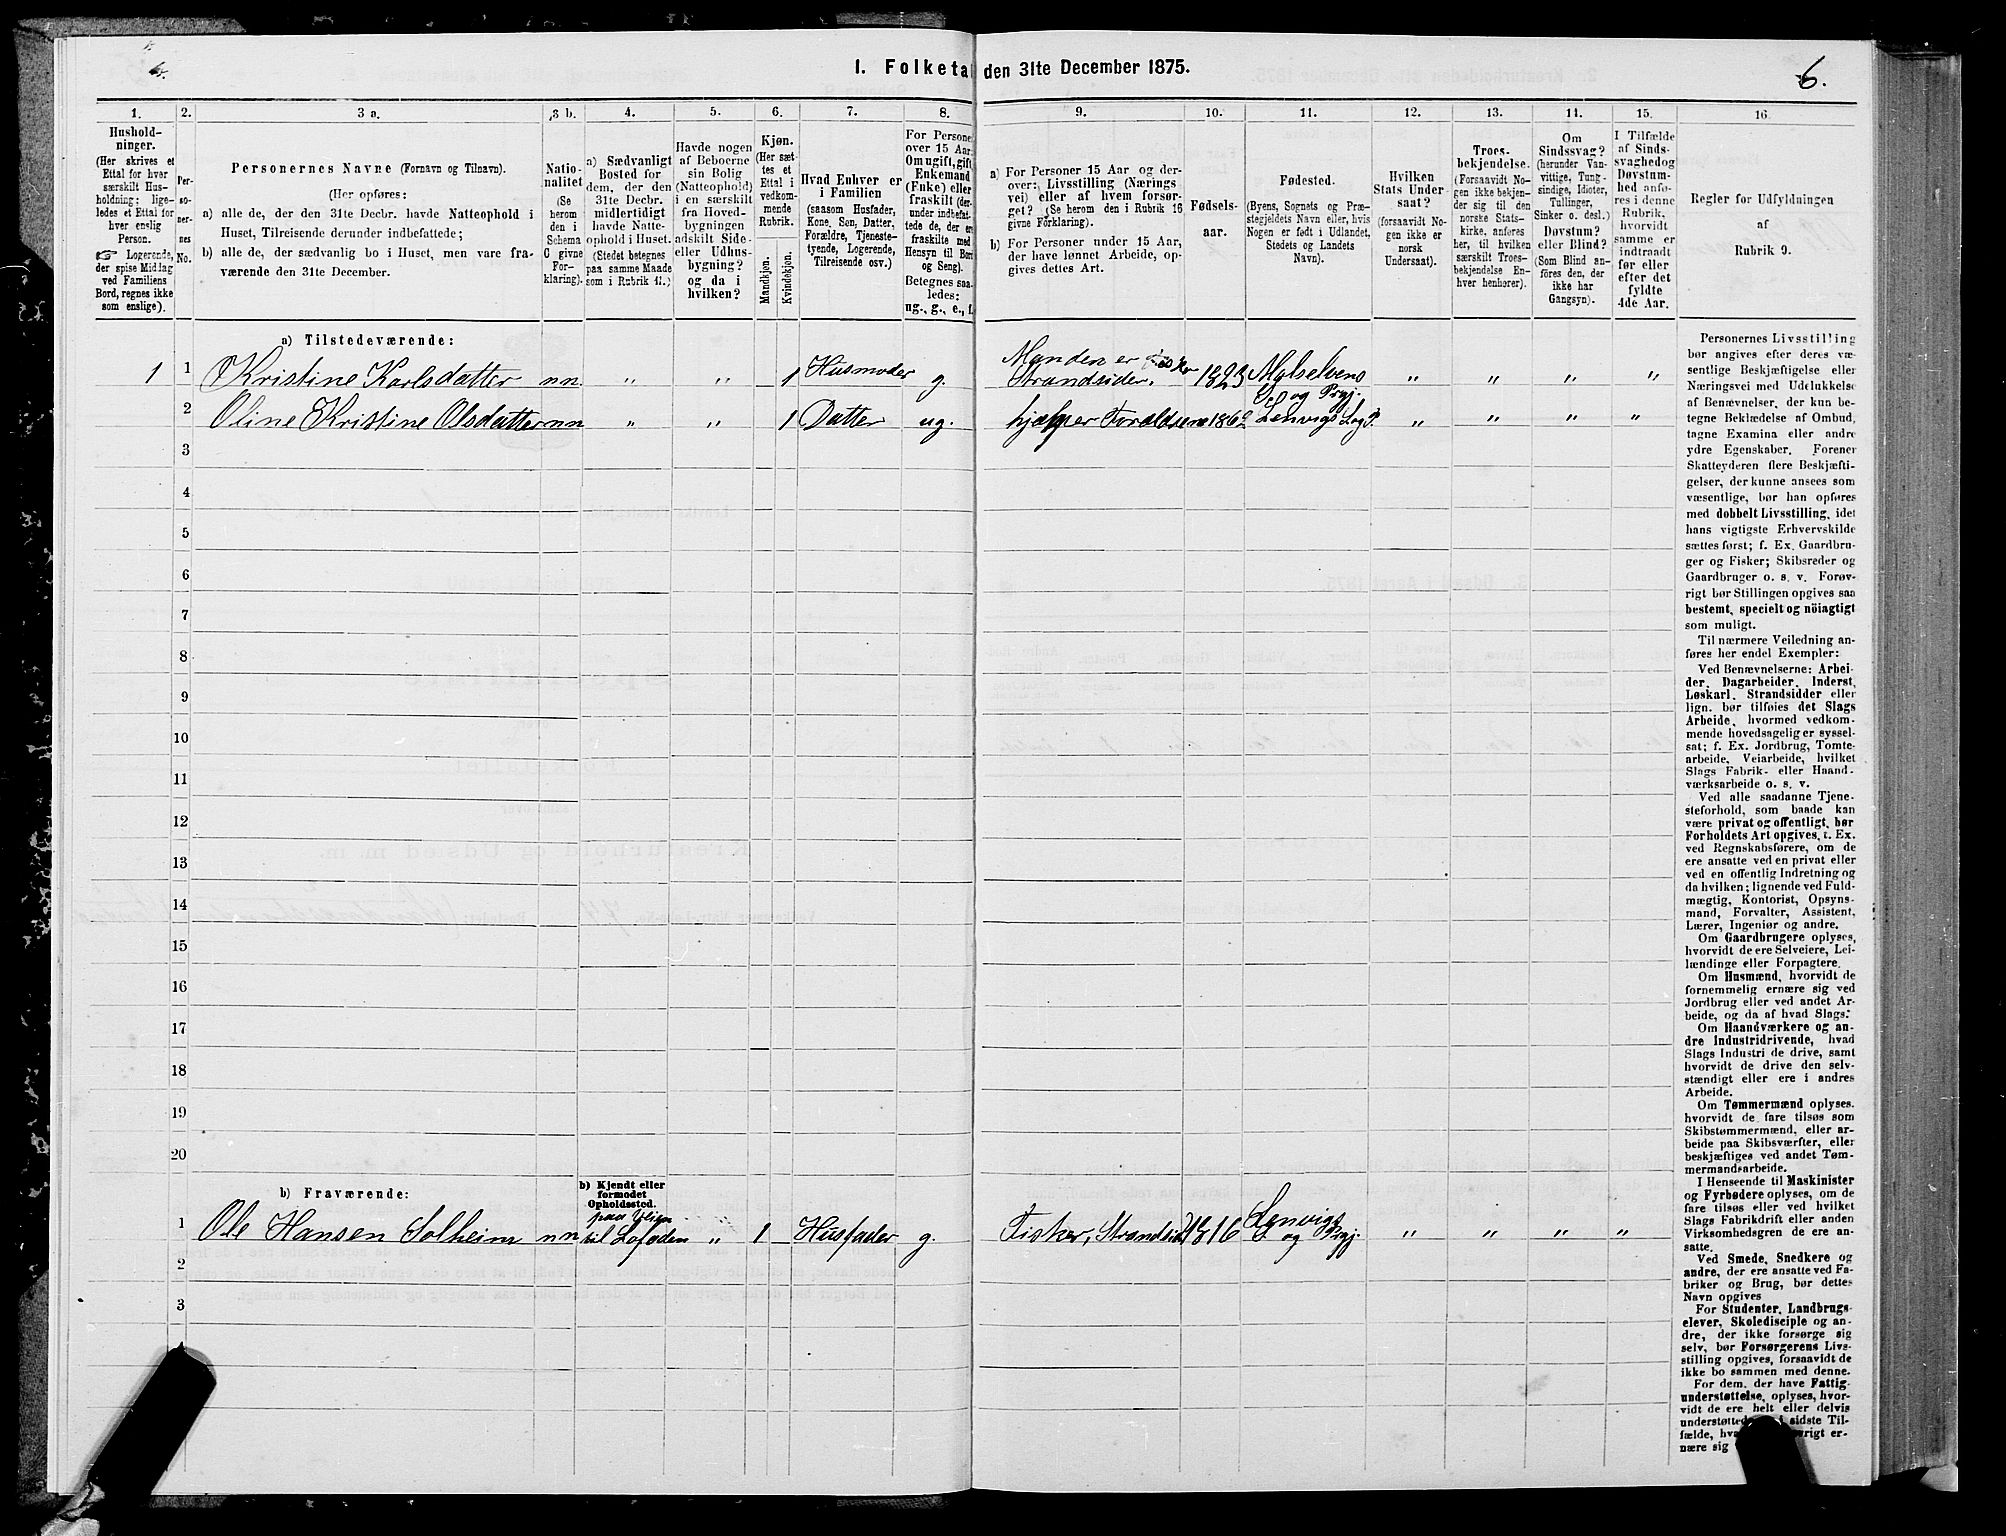 6.
1. Folketal den 31te December 1875.
6.
1.
Hushold-
ninger.
(Her skrives et
Ettal for hver
særskilt Hus-
holdning; lige-
ledes et Ettal for
hver enslig
Person.
☞ Logerende,
der spise Middag
ved Familiens
Bord, regnes ikke
som enslige).
2.
Per-
so-
ner-
nes
No.
3 a.
Personernes Navne (Fornavn og Tilnavn).
(Her opføres:
a) alle de, der den 31te Decbr. havde Natteophold i
Huset, Tilreisende derunder indbefattede;
b) alle de, der sædvanlig bo i Huset, men vare fra-
værende den 31te December.
3 b.
Natio-
nalitet
(Se
herom
den i
Schema
C givne
For-
klaring).
4.
a) Sædvanligt
Bosted for
dem, der den
31te Decbr.
midlertidigt
havde Natte-
ophold i Huset.
(Stedet betegnes
paa samme Maade
som i Rubrik 11.)
5.
Havde nogen
af Beboerne
sin Bolig
(Natteophold)
i en særskilt
fra Hoved-
bygningen
adskilt Side-
eller Udhus-
bygning?
og da i
hvilken?
6.
Kjøn.
(Her sæt-
tes et
Ettal i
vedkom-
mende
Rubrik.
Mandkjøn.
Kvindekjøn.
7.
Hvad Enhver er
i Familien
(saasom Husfader,
Kone, Søn, Datter,
Forældre, Tjeneste-
tyende, Logerende,
Tilreisende osv.)
8.
For Personer
over 15 Aar:
Om ugift, gift,
Enkemand
(Enke) eller
fraskilt (der-
under indbefat-
tede de, der ere
fraskilte med
Hensyn til Bord
og Seng).
Betegnes saa-
ledes:
ug., g., e., f.
9.
a) For Personer 15 Aar og der-
over: Livsstilling (Nærings-
vei) eller af hvem forsør-
get? (Se herom den i Rubrik 16
givne Forklaring).
b) For Personer under 15 Aar,
der have lønnet Arbeide, op-
gives dettes Art.
10.
Fødsels-
aar.
11.
Fødested.
(Byens, Sognets og Præ-
stegjeldets Navn eller, hvis
Nogen er født i Udlandet,
Stedets og Landets
Navn).
12.
Hvilken
Stats Under-
saat?
(forsaavidt No-
gen ikke er
norsk
Undersaat).
13.
Troes-
bekjendelse.
(Forsaavidt No-
gen ikke bekjen-
der sig til den
norske Stats-
kirke, anføres
her, til hvilken
særskilt Troes-
bekjendelse En-
hver henhører).
14.
Om
Sindssvag?
(herunder Van-
vittige, Tung-
sindige, Idioter,
Sinker o. desl.)
Døvstum?
eller Blind?
(Som Blind an-
føres den, der
ikke har
Gangsyn).
15.
I Tilfælde
af Sinds-
svaghed og
Døvstum-
hed anfø-
res i denne
Rubrik,
hvorvidt
samme er
indtraadt
før eller
efter det
fyldte
4de Aar.
16.
Regler for Udfyldningen
af
Rubrik 9.
a) Tilstedeværende:
1 1 Kristine Karlsdatter nn. „ „ 1 Husmoder g. Manden er Fisker Strandsider. 1823 Malselvens S. og Prgj. „ „ „ „
2 Oline Kristine Olsdatter nn „ „ 1 Datter ug. hjælper Forældrene Lenvigs S. og P. „ „ „ „
3
4
5
6
7
8
9
10
11
12
13
14
15
16
17
18
19
20
b) Fraværende:
b) Kjendt eller
formodet
Opholdssted.
1 Ole Hansen Solheim nn. paa Veien til Lofoden „ 1 Husfader g. Fisker, Strandsid. 1816 Lenvigs S. og Prgj. „ „ „ „
2
3
Personernes Livsstilling
bør angives efter deres væ-
sentlige Beskjæftigelse eller
Næringsvei med Udelukkelse
af Benævnelser, der kun be-
tegne Beklædelse af Ombud,
tagne Examina eller andre
ydre Egenskaber. Forener
Skatteyderen flere Beskjæfti-
gelser, der kunne ansees som
væsentlige, bør han opføres
med dobbelt Livsstilling, idet
hans vigtigste Erhvervskilde
sættes først; f. Ex. Gaardbru-
ger og Fisker; Skibsreder og
Gaardbruger o. s. v. Forøv-
rigt bør Stillingen opgives saa
bestemt, specielt og nöiagtigt
som muligt.
Til nærmere Veiledning an-
føres her endel Exempler:
Ved Benævnelserne: Arbei-
der, Dagarbeider, Inderst,
Løskarl, Strandsidder eller
lign. bør tilføies det Slags
Arbeide, hvormed vedkom-
mende hovedsagelig er syssel-
sat; f. Ex. Jordbrug, Tomte-
arbeide, Veiarbeide, hvilket
Slags Fabrik- eller Haand-
værksarbeide o. s. v.
Ved alle saadanne Tjene-
steforhold, som baade kan
være privat og offentligt, bør
Forholdets Art opgives, t. Ex.
ved Regnskabsførere, om de
ere ansatte ved en privat eller
ved en offentlig Indretning og
da hvilken; lignende ved Fuld-
mægtig, Kontorist, Opsyns-
mand, Forvalter, Assistent,
Lærer, Ingeniør og andre.
Om Gaardbrugere oplyses,
hvorvidt de ere Selveiere, Lei-
lændinge eller Forpagtere.
Om Husmænd, hvorvidt de
fornemmelig ernære sig ved
Jordbrug eller ved andet Ar-
beide, og da af hvad Slags.
Om Haandværkere og an-
dre Industridrivende, hvad
Slags Industri de drive, samt
hvorvidt de drive den selv-
stændigt eller ere i andres
Arbeide.
Om Tømmermænd oplyses,
hvorvidt de fare tilsøs som
Skibstømmermænd, eller ar-
beide paa Skibsværfter, eller
beskjæftiges ved andet Tøm-
mermandsarbeide.
I Henseende til Maskinister
og Fyrbødere oplyses, om de
fare tilsøs eller ved hvilket
Slags Fabrikdrift eller anden
Virksomhedsgren de ere an-
satte.
Ved Smede, Snedkere og
andre, der ere ansatte ved Fa-
briker og Brug, bør dettes
Navn opgives
For Studenter, Landbrugs-
elever, Skoledisciple og an-
dre, der ikke forsørge sig
selv, bør Forsørgerens Livs-
stilling opgives, forsaavidt de
ikke bo sammen med denne.
For dem, der have Fattig-
understøttelse, oplyses, hvor-
vidt de ere helt eller delvis
understøttede i sidste Til-
fælde,
nære sig